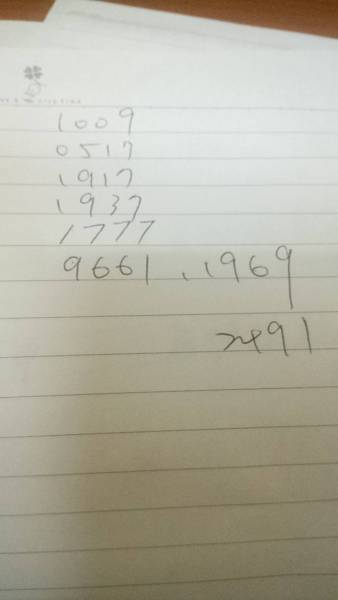 1009
0517
1917
1937
1777
9661, 1969
2491